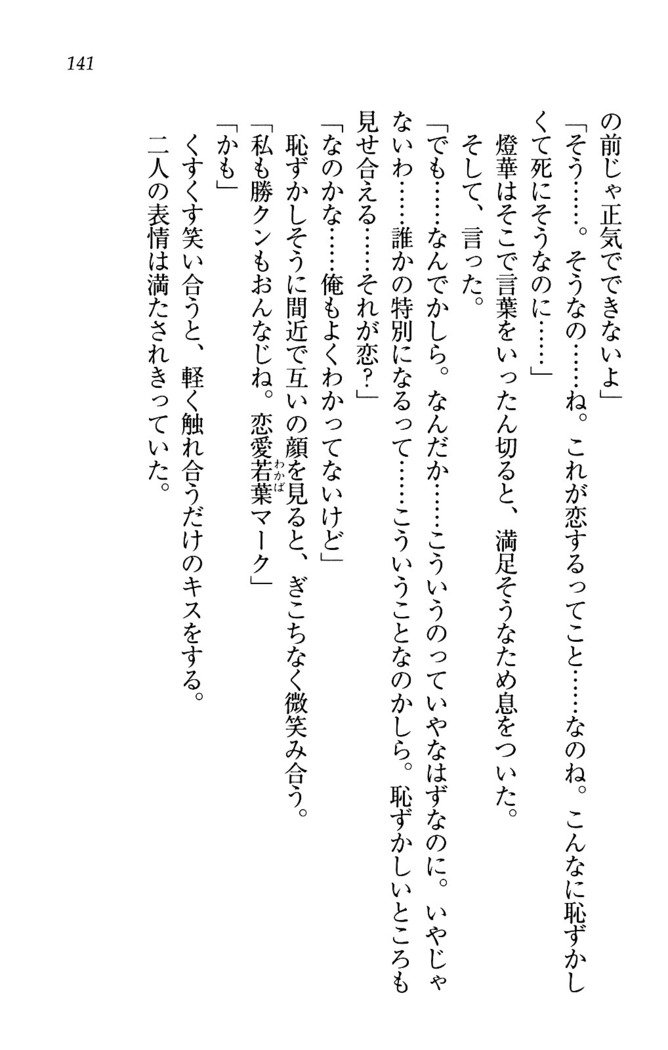 141
の前じゃ正気でできないよ」
「そう……。そうなの……ね。これが恋するってこと……なのね。こんなに恥ずかし
くて死にそうなのに……」
燈華はそこで言葉をいったん切ると、満足そうなため息をついた。
そして、言った。
「でも……なんでかしら。なんだか……こういうのっていやなはずなのに。いやじゃ
ないわ……誰かの特別になるって……こういうことなのかしら。恥ずかしいところも
見せ合える……それが恋？」
「なのかな……俺もよくわかってないけど」
恥ずかしそうに間近で互いの顔を見ると、ぎこちなく微笑み合う。
「私も勝クンもおんなじね。恋愛若葉マーク」
わかば
「かも」
くすくす笑い合うと、軽く触れ合うだけのキスをする。
二人の表情は満たされきっていた。